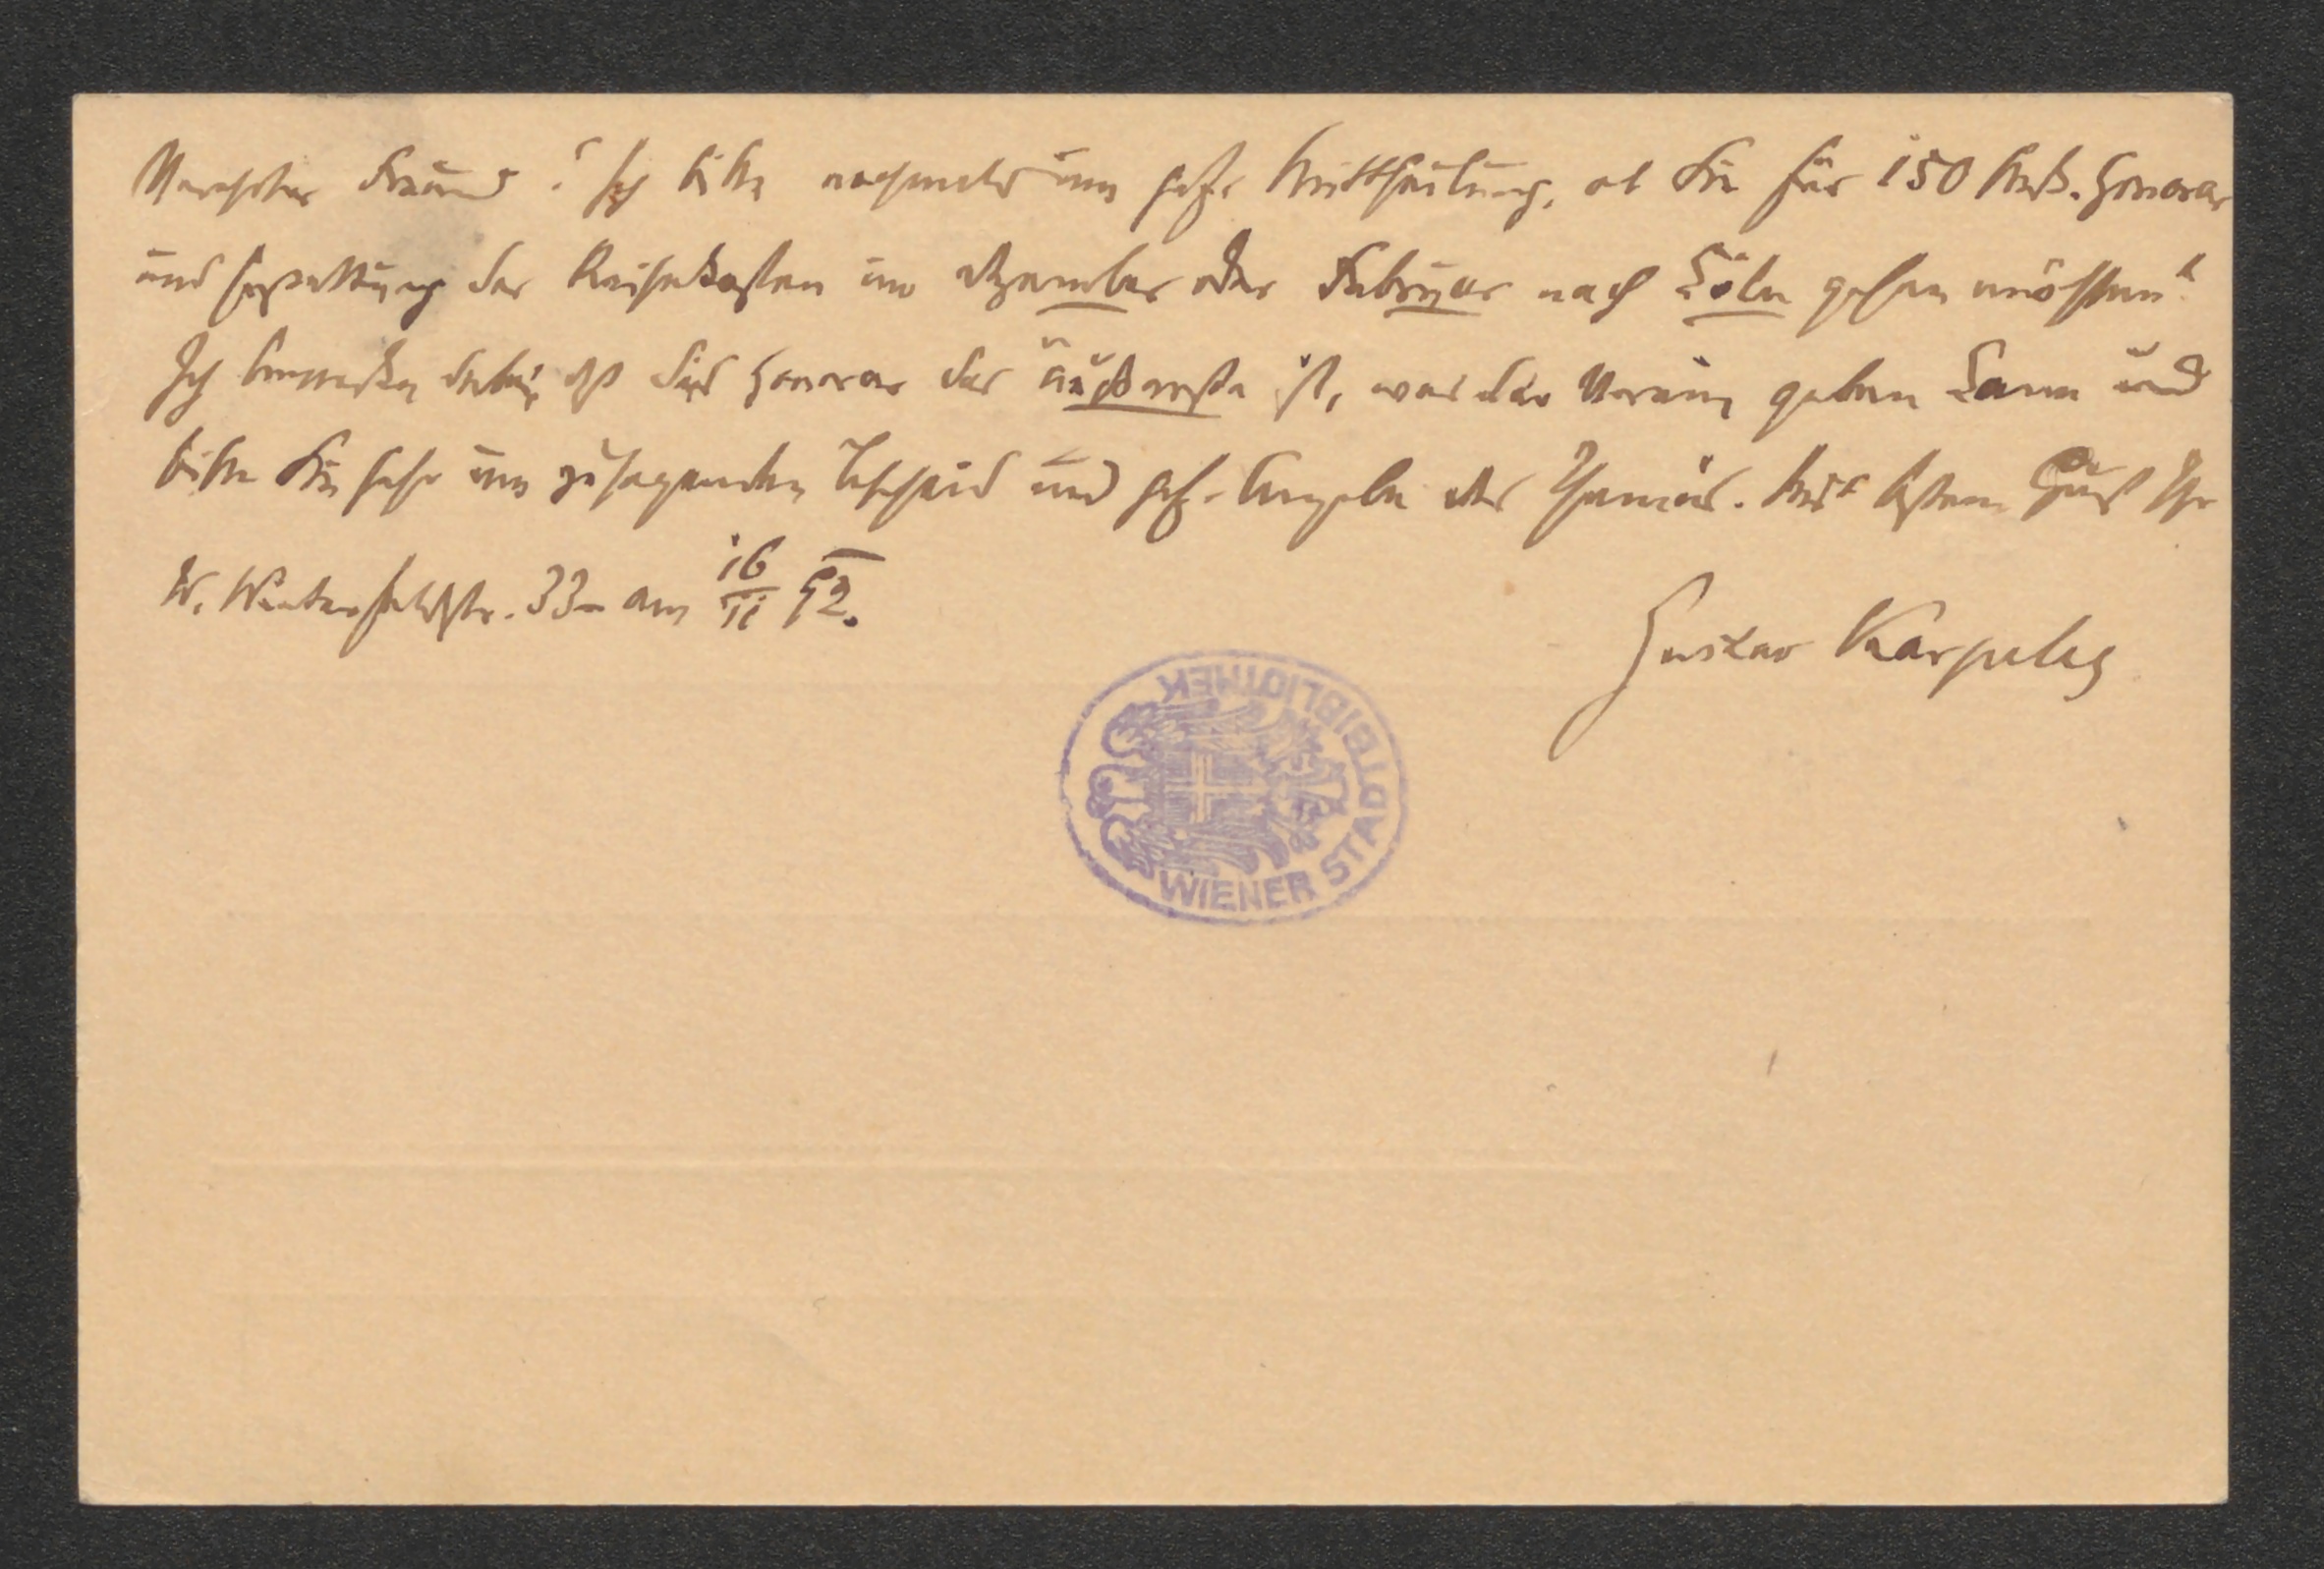 Verehrter Freund! Ich bitte nochmals um gefl. Mittheilung, ob Sie für 150 Mk. Honorar
und Erstattung der Reisekosten im Dezember oder Februar nach Köln gehen möchten?
Ich bemerke dabei, daß dies Honorar das äußerste ist, was der Verein geben kann und
bitte Sie sehr um zusagenden Bescheid und gefl. Angabe des Themas. Mit bestem Gruß Ihr
W. Winterfeldtstr. 33. am 16/11 92.
Gustav Karpeles
WIENER STADTBIBLIOTHEK